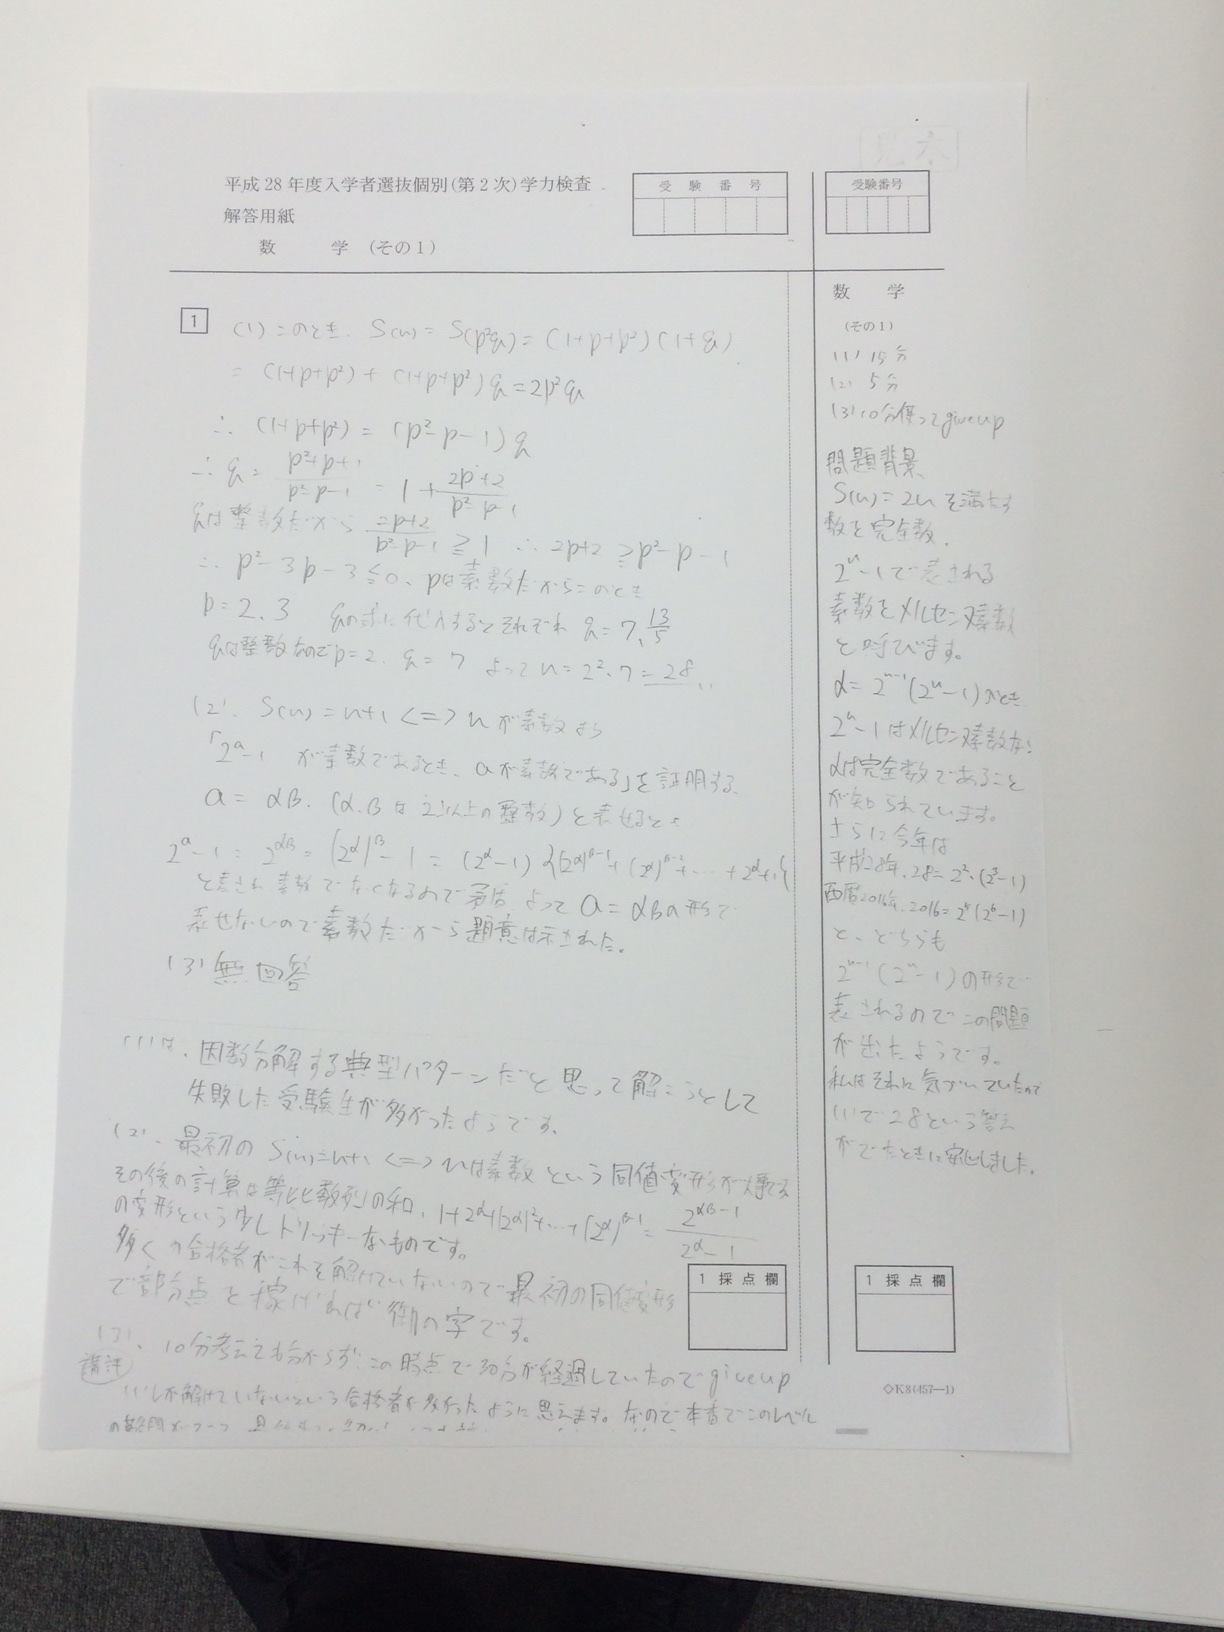 見本
平成28年度入学者選抜個別(第2次)学力検査
解答用紙
数 学 (その1)
受 験 番 号
受験番号
1
(1) このとき、S(n) = S(p²q) = (1+p+p²)(1+q)
= (1+p+p²) + (1+p+p²)q = 2p²q
∴ (1+p+p²) = (p²-p-1)q
∴ q = p²+p+1/p²-p-1 = 1 + 2p+2/p²-p-1
qは整数だから 2p+2/p²-p-1 ≧ 1 ∴ 2p+2 ≧ p²-p-1
∴ p²-3p-3≦0、pは素数だからこのとき
p=2、3 qの式に代入するとそれぞれ q=7、13/5
qは整数なのでp=2、q=7 よって n=2²・7=28
(2)、S(n)=n+1 <=> nが素数より
「2ᵃ-1 が素数であるとき、aが素数である」を証明する、
a = αβ、(α、βは2以上の整数)と表せるとき
2ᵃ-1 = 2^αβ = (2^α)^β - 1 = (2^α-1){(2^α)^β-1+(2^α)^β-2+…+2^α+1}
と表され素数でなくなるので矛盾 よって a=αβの形で
表せないので素数だから題意は示された。
(3) 無回答
(1)は、因数分解する典型パターンだと思って解こうとして
失敗した受験生が多かったようです、
(2)、最初の S(n)=n+1 <=> nは素数という同値変形が大事です
その後の計算は等比数列の和、1+2^α+(2^α)²+…+(2^α)^β-1 = 2^αβ-1/2^α-1
の変形という少しトリッキーなものです。
多くの合格者がこれを解けていないので最初の同値変形
で部分点を稼げれば御の字です。
(3)、10分考えても分からず、この時点で30分が経過していたのでgive up
講評
(1)しか解けていないという合格者が多かったように思えます。なので本番でこのレベル
1 採 点 欄
数 学
(その1)
(1) 15分
(2) 5分
(3) 10分使ってgive up
問題背景
S(n)=2nを満たす
数を完全数、
2ⁿ-1で表される
素数をメルセンヌ素数
と呼びます。
α=2ⁿ⁻¹(2ⁿ-1)のとき
2ⁿ-1はメルセンヌ素数なら
αは完全数であること
が知られています。
さらに今年は
平成28年、28=2²・(2³-1)
西暦2016年、2016=2⁵(2⁶-1)
と、どちらも
2ⁿ⁻¹(2ⁿ-1)の形で
表されるのでこの問題
が出たようです。
私はそれに気づいていたので
(1)で28という答え
がでたときに安心しました。
1 採 点 欄
◇K8(457—1)